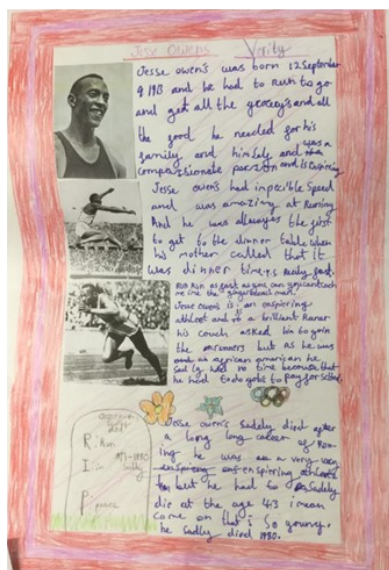 Jesse Owens Verity
Jesse owen's was born 12 September
9 1913 and he had to run to go
and get all the grocery's and all
the good he needed for his
family and himself and was a
compassionate person and is Enspiring
Jesse owens had impecible Speed
and was amazing at Running
And he was allways the first
to get to the dinner table when
his mother called that it
was dinner time,
Run Run as fast as you can you cant catch
me im the gingerbread man.
Jesse Owens is an enspiering
athleet and a brilliant Runar
his couch asked him to join
the runners but as he was
an african american he
Sadly had no time because that
he had to do jobs to pay for School.
Jesse owen's Sadely died after
a long long career of Run-
ing he was a very very
enspiering
but he had to Sadely
die at the age 43 i mean
come on that's So young.
he Sadly died 1980.
R.
I. in
P. peace